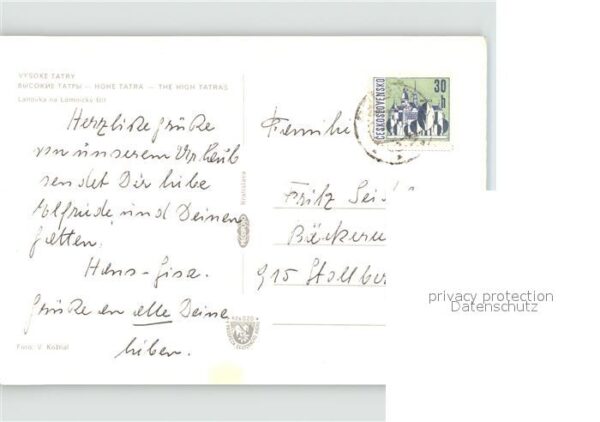 VYSOKÉ TATRY
ВЫСОКИЕ ТАТРЫ — HOHE TATRA — THE HIGH TATRAS
Lanovka na Lomnický štít
Herzliche Grüße
von unserem Urlaub
sendet Dir liebe
Elfriede und Deinen
Gatten.
Hans-Gisa.
Grüße an alle Deine
lieben.
Foto: V. Kožnal
Bratislava
ČESKOSLOVENSKO
30 h
Familie
Fritz Seid
Bäckerei
915 Stollber
privacy protection
Datenschutz